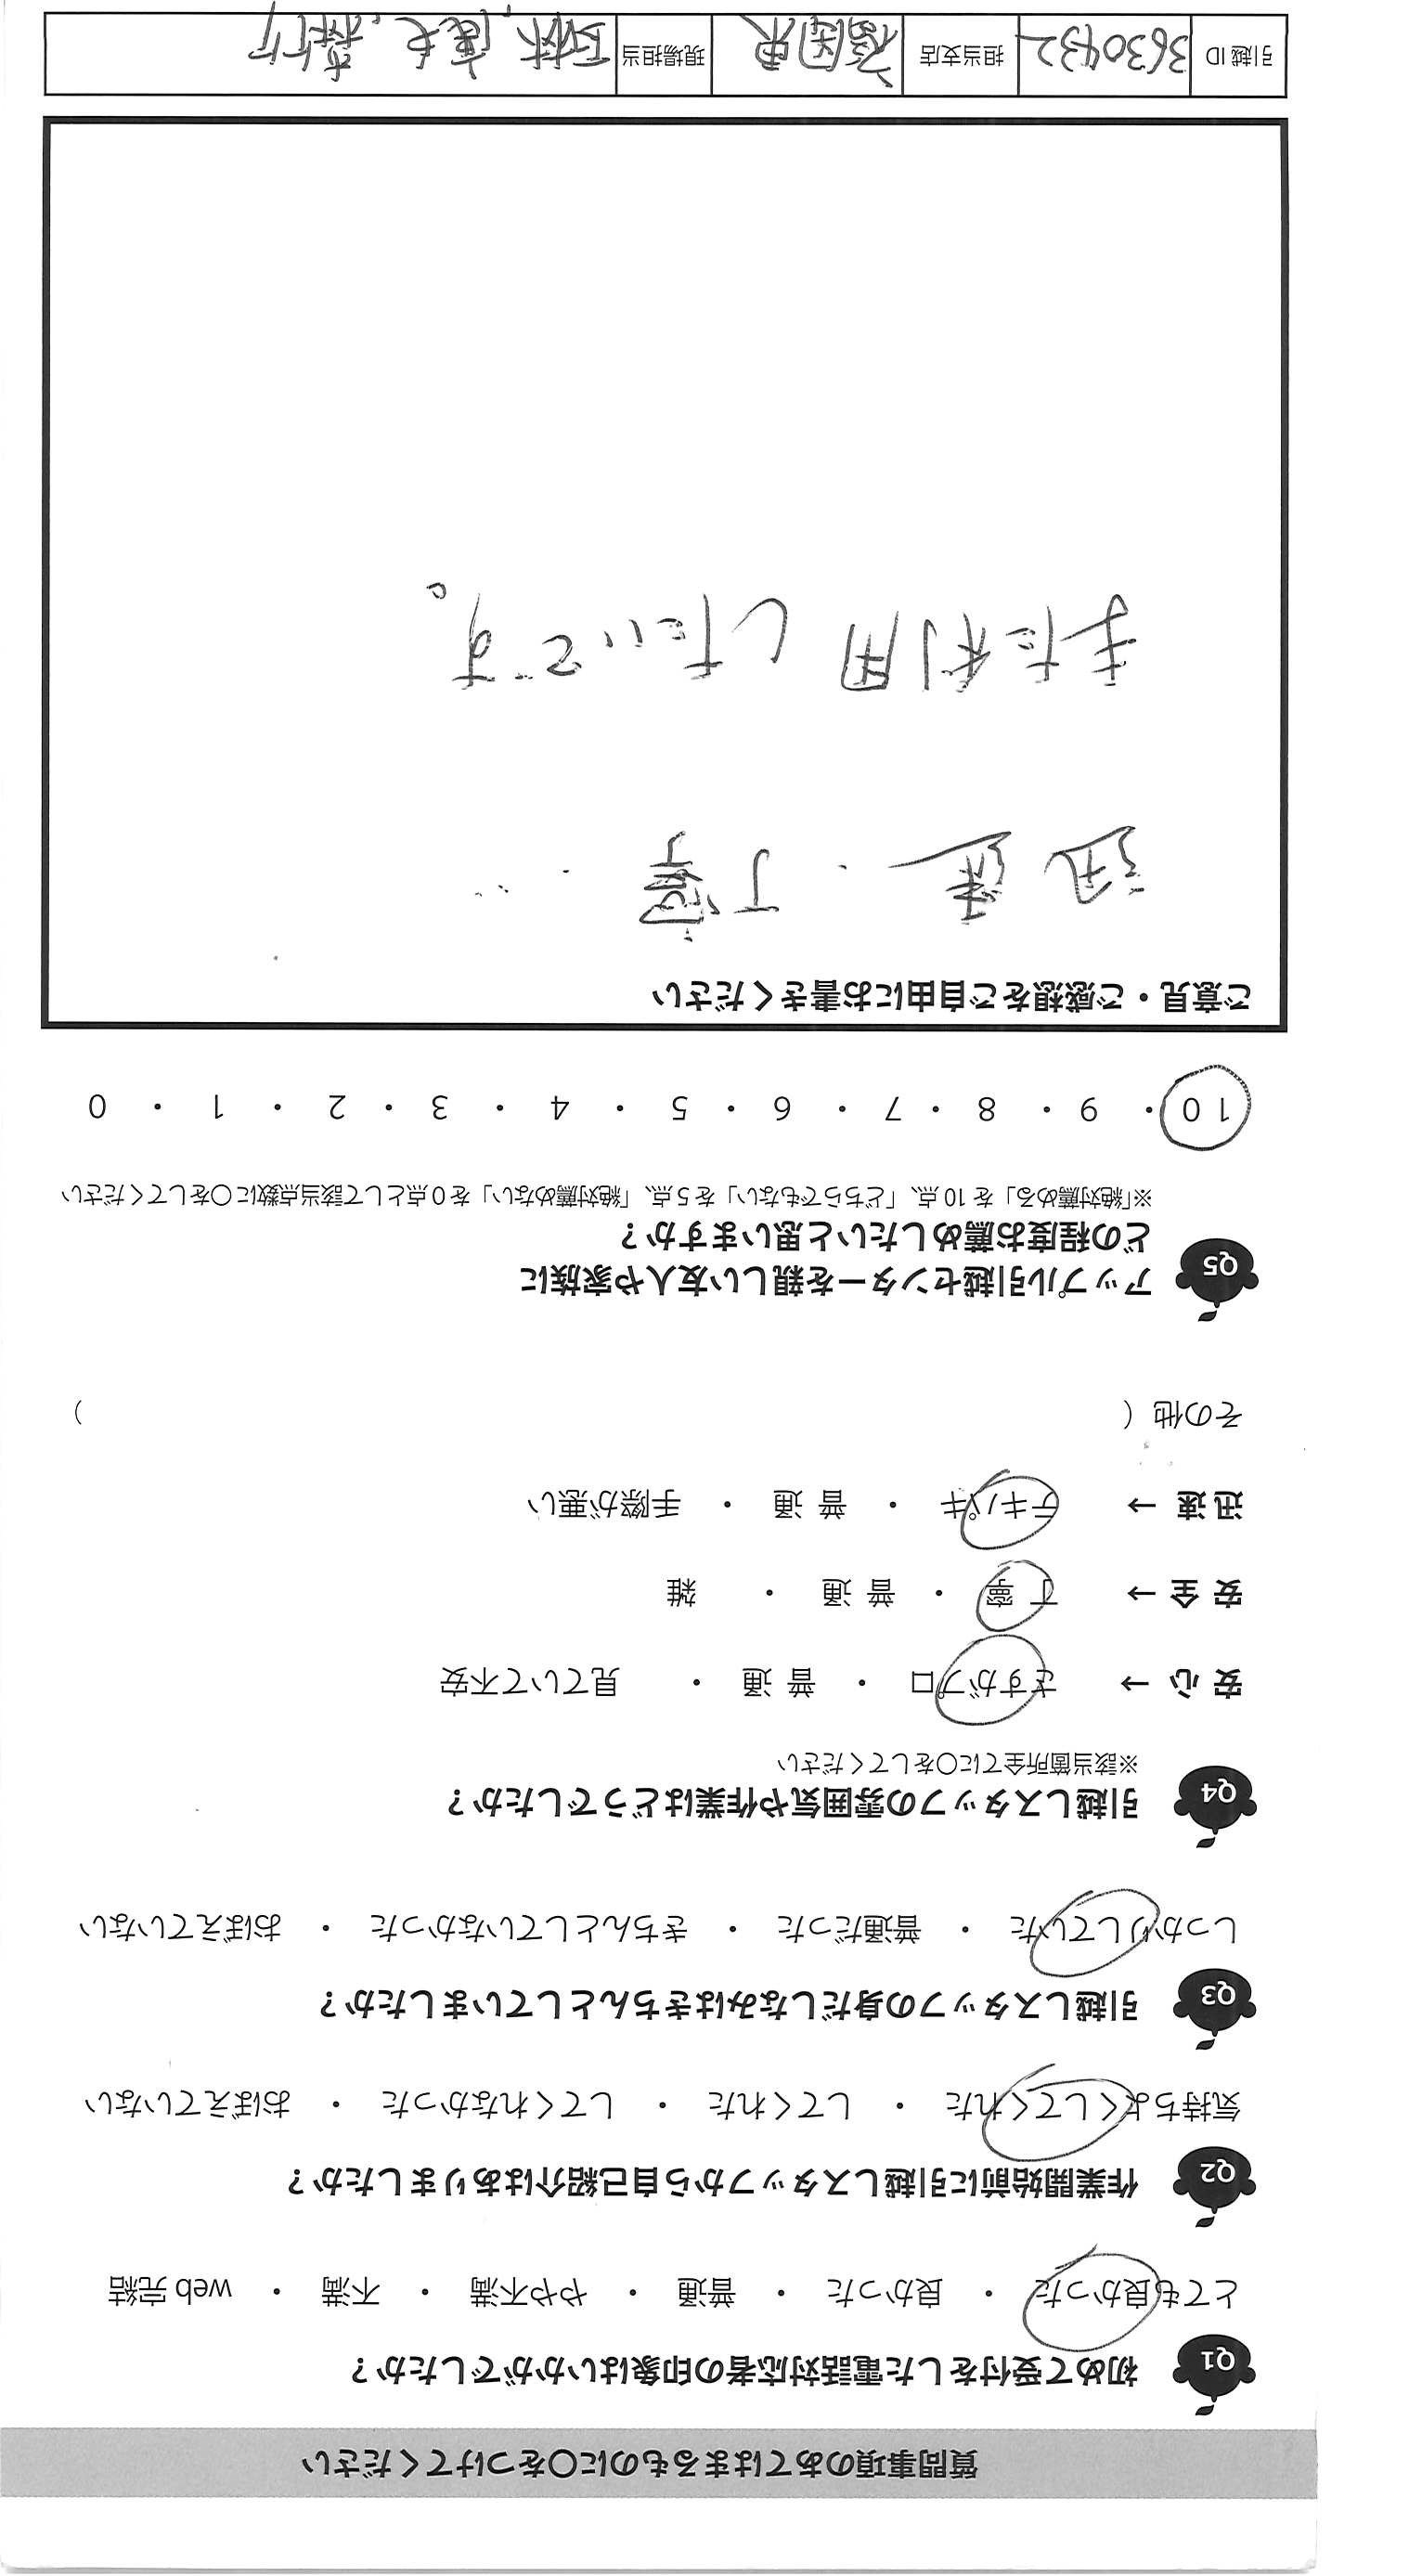 質問事項のあてはまるものに〇をつけてください
Q1 初めて受付をした電話対応者の印象はいかがでしたか？
とても良かった ・ 良かった ・ 普通 ・ やや不満 ・ 不満 ・ web 完結
Q2 作業開始前に引越しスタッフから自己紹介はありましたか？
気持ちよくしてくれた ・ してくれた ・ してくれなかった ・ おぼえていない
Q3 引越しスタッフの身だしなみはきちんとしていましたか？
しっかりしていた ・ 普通だった ・ きちんとしていなかった ・ おぼえていない
Q4 引越しスタッフの雰囲気や作業はどうでしたか？
※該当箇所全てに〇をしてください
安 心 → さすがプロ ・ 普 通 ・ 見ていて不安
安 全 → 丁 寧 ・ 普 通 ・ 雑
迅 速 → テキパキ ・ 普 通 ・ 手際が悪い
その他（ ）
Q5 アップル引越センターを親しい友人や家族に
どの程度お薦めしたいと思いますか？
※「絶対薦める」を 10 点、「どちらでもない」を 5 点、「絶対薦めない」を 0 点として該当点数に〇をしてください
10 ・ 9 ・ 8 ・ 7 ・ 6 ・ 5 ・ 4 ・ 3 ・ 2 ・ 1 ・ 0
ご意見・ご感想をご自由にお書きください
迅速・丁寧
また利用したいです。
引越 ID 3630432 担当支店 福岡東 現場担当